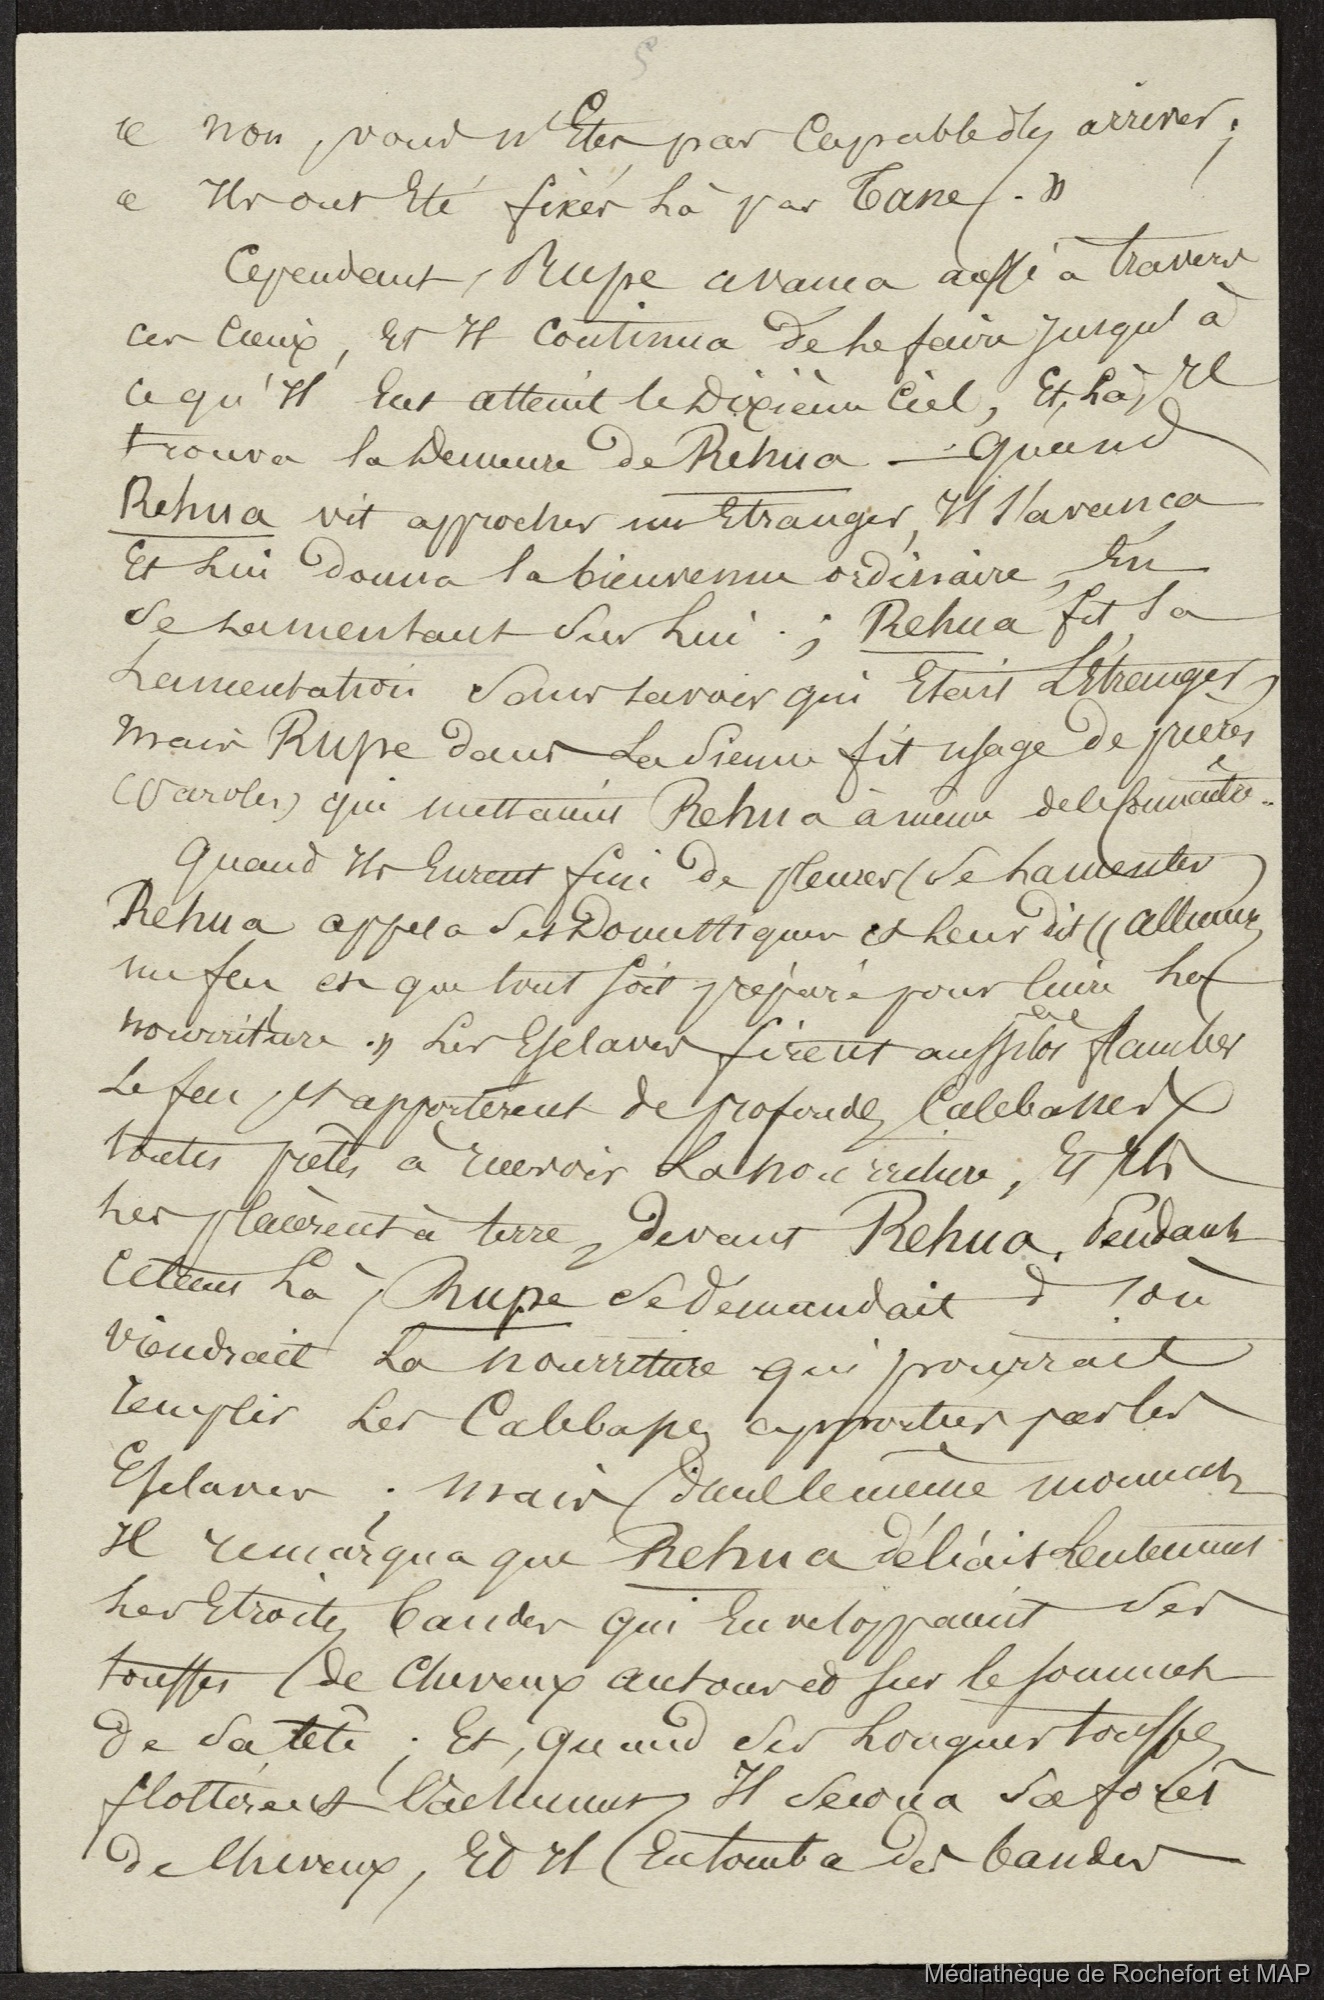 5
« non, vous n'Etes pas Capable d'y arriver ;
« Ils ont Eté fixés Là par Tane. »
Cependant, Rupe avança aussi à travers
ces Cieux, Et Il continua de le faire jusqu'à
ce qu'Il Eut atteint le Dixième Ciel, Et, Là, Il
trouva la Demeure de Rehua — Quand
Rehua vit approcher un Etranger, Il s'avança
Et Lui donna la bienvenue ordinaire, En
se Lamentant sur Lui ; Rehua fit sa
Lamentation sans savoir qui Etait L'Etranger,
mais Rupe dans La sienne fit usage de prières
(Paroles) qui mettaient Rehua à même de le connaître.
Quand Ils Eurent fini de pleurer (se Lamenter)
Rehua appela ses Domestiques et Leur dit (( allumez
un feu et que tout soit préparé pour cuire La
nourriture .)) Les Esclaves firent aussitôt flamber
Le feu, et apportèrent de profondes Calebasses
toutes prêtes à recevoir La nourriture, Et Ils
Les placèrent à terre, devant Rehua. Pendant
ce temps Là, Rupe se demandait d'où
viendrait La nourriture qui pourrait
remplir Les Calebasses apportées par les
Esclaves ; mais dans le même moment
Il remarqua que Rehua déliait Lentement
Les Etroites bandes qui Enveloppaient ses
touffes de cheveux autour et sur le sommet
de sa tête ; Et, quand ses Longues touffes
flottèrent Il secoua sa forêt
de cheveux, Et Il En tomba des bandes
Médiathèque de Rochefort et MAP